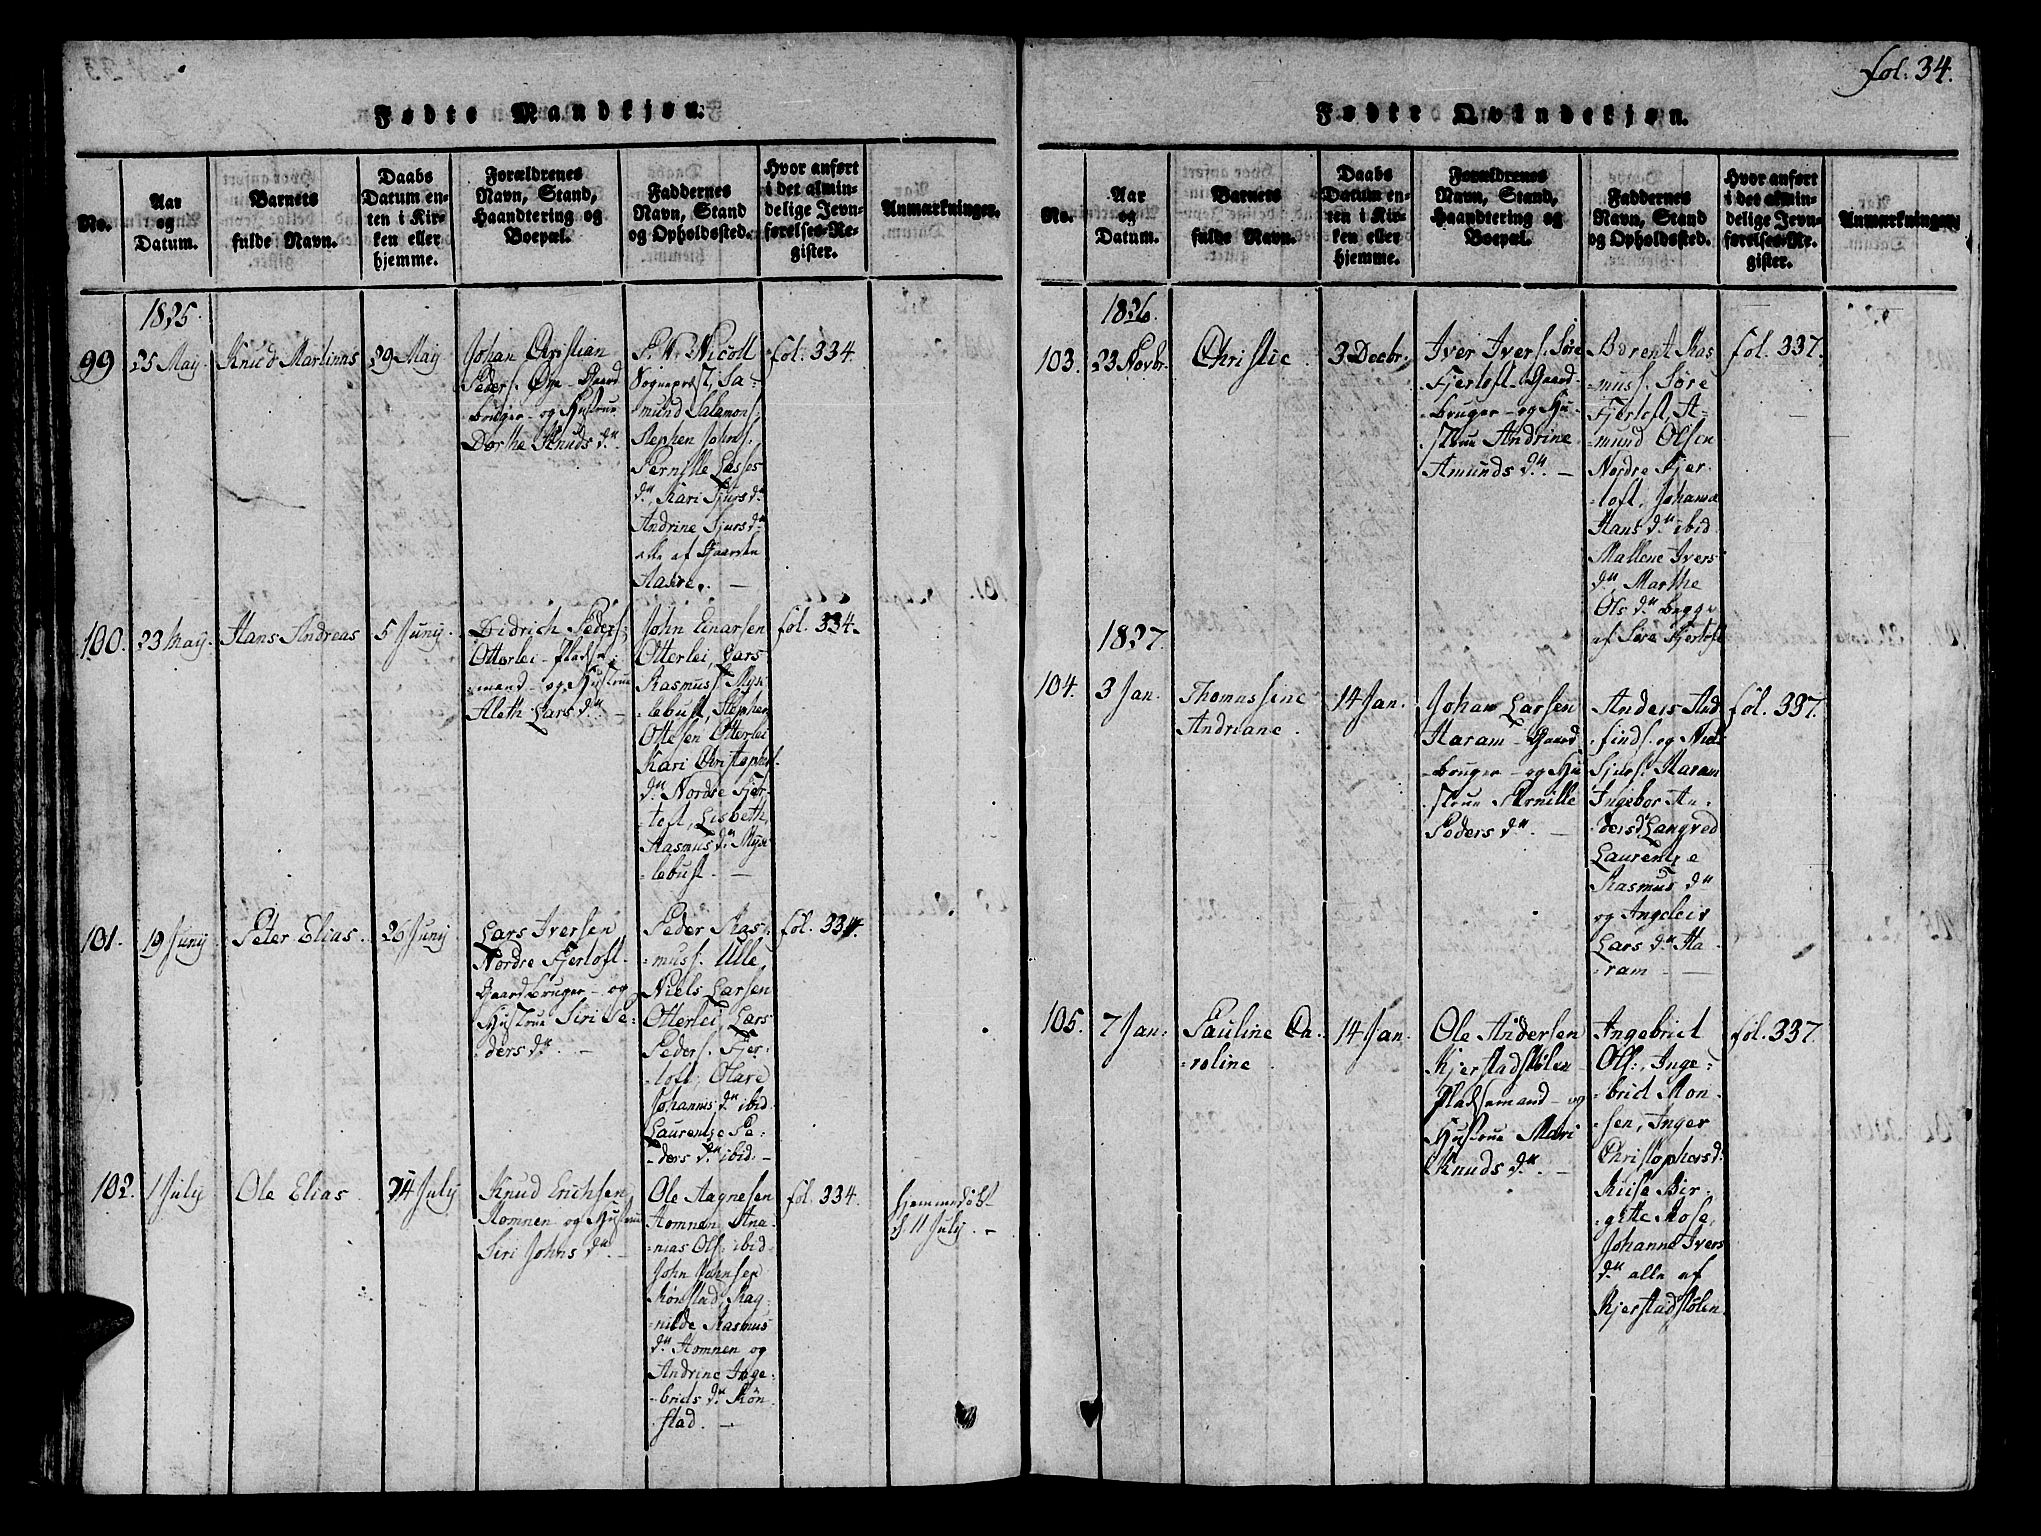 fol. 34.
Fødte Mandkjøn.
No.
Aar og Datum.
Barnets fulde Navn.
Daabs Datum enten i Kirken eller hjemme.
Forældrenes Navn, Stand, Haandtering og Boepæl.
Faddernes Navn, Stand og Opholdssted.
Hvor anført i det almindelige Jevnførelses-Register.
Anmærkninger.
1825.
99
25 May.
Knud Martinus
29 May
Johan Christian
Peders. Gaard
bruger - og Hustrue
Dorthe Knuds d.
S. N. Nicoll
Sogneprest, Sa-
mund Salamons.
Stephen Johns.
Pernille Lasses
d., Kari Sjurs d.
Andrine Sjurs d.
alle af Gaarden
fol. 334.
100.
23 May.
Hans Andreas
5 Juny.
Didrich Peders.
Otterlei - Plads-
mand - og Hustrue
Aleth Lars d. -
John Einarsen
Otterlei, Lars
Rasmus. Myk-
lebust, Stephen
Ottesen Otterlei
Kari Christophers
d. Nordre Fjer-
toft, Lisbeth
Rasmus d. Myk
lebust. -
fol. 334.
101.
19 Juny
Peter Elias.
26 Juny
Lars Iversen
Nordre Fjertoft.
Gaardbruger - og
Hustrue Siri Pe-
ders d. -
Peder Ras-
mus. Ulle
Niels Larsen
Otterlei, Lars
Peders. Fjer-
toft, Olave
Johannis d. ibid
Laurentze Pe-
ders d. ibid. -
fol. 334.
102.
1 July
Ole Elias.
24 July
Knud Erichsen
Romnen og Hustrue
Siri Johns d. -
Ole Aagnesen
Romnen, Ana-
nias Ols. ibid
John Johnsen
Rønstad, Rag-
nilde Rasmus
d. Romnen og
Andrine Inge-
brids d. Røn
stad. -
fol. 334.
hjemmedøbt
d. 11 July. -
Fødte Qvindekjøn.
No.
Aar og Datum.
Barnets fulde Navn.
Daabs Datum enten i Kirken eller hjemme.
Forældrenes Navn, Stand, Haandtering og Boepæl.
Faddernes Navn, Stand og Opholdssted.
Hvor anført i det almindelige Jevnførelses-Re. gister.
Anmærkninger.
1826.
103.
23 Novbr.
Christie
3 Decbr.
Iver Ivers. Søre
Fjertoft - Gaard-
bruger - og Hu-
strue Andrine
Amunds d. -
Berent Ras
mus. Søre
Fjertoft, A-
mund Olsen
Nordre Fjer-
toft, Johanna
Hans d. ibid
Mallene Ivers
d. Marthe
Ols d. begge
af Søre Fjertoft
fol. 337.
1827.
104.
3 Jan.
Thomassine
Andriane.
14 Jan.
Johan Larsen
Haram - Gaard
bruger - og Hu
strue Pernille
Peders d. -
Anders And
finds. og Niels
Sjurs. Haram
Ingebor An-
ders d. Langved
Laurentze
Rasmus d.
og Angeleis
Lars d. Ha-
ram - -
fol. 337.
105.
7 Jan.
Pauline Ca-
roline.
14 Jan.
Ole Andersen
Kjerstadstølen
Pladsemand - og
Hustrue Mari
Knuds d. -
Ingebriet
Ols., Inge-
brict Mon-
sen, Inger
Christophers d.
Riise Bir-
gitte Mose,
Johanne Ivers
d. alle af
Kjerstadstølen.
fol. 337.